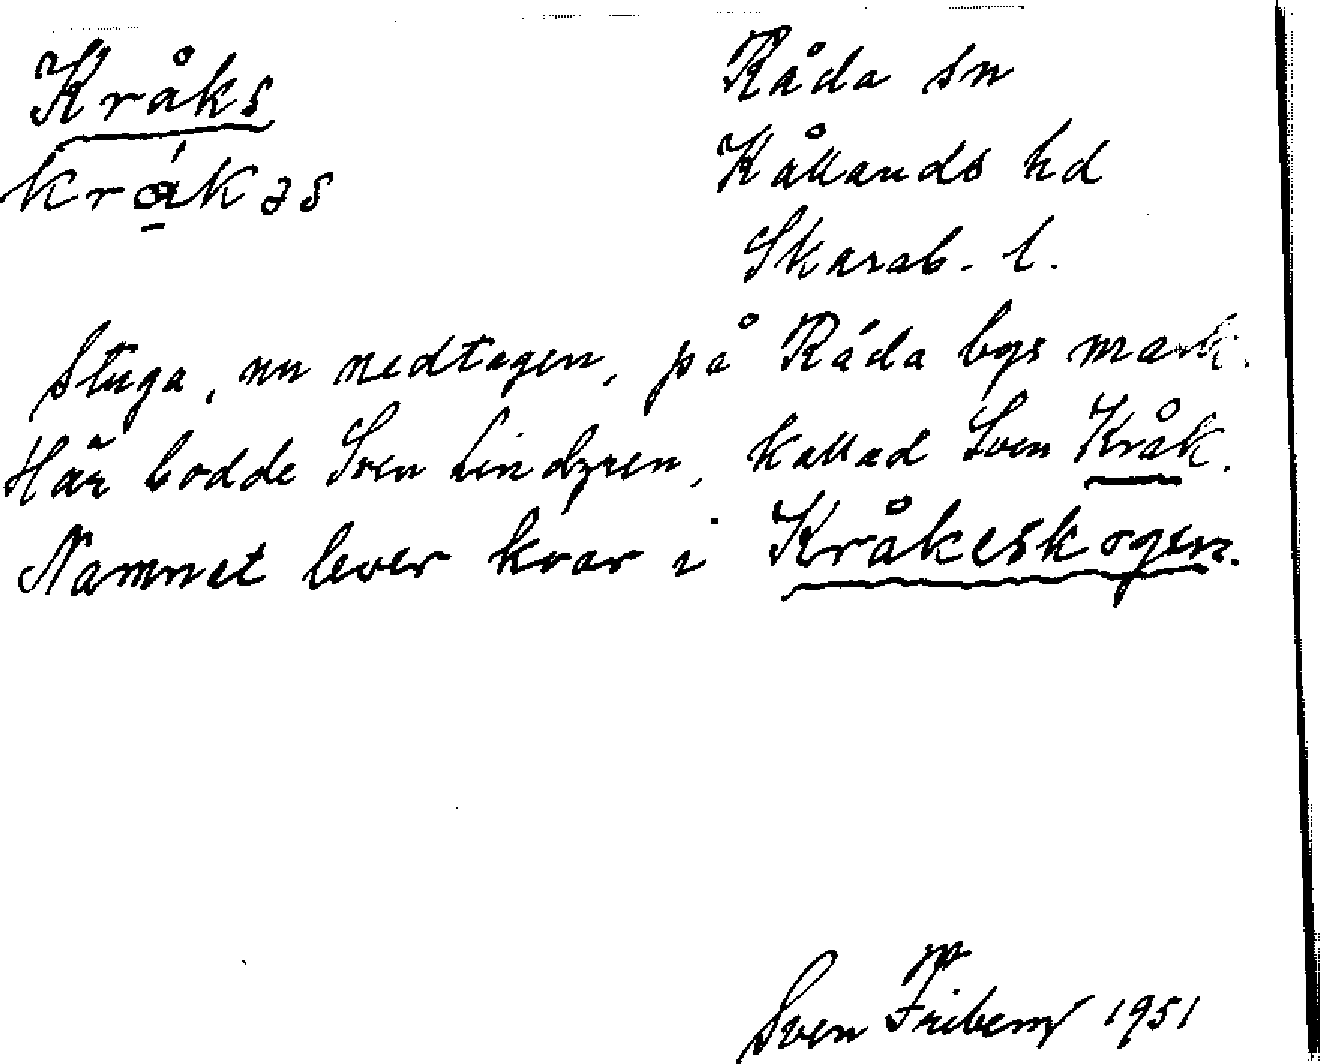 Kråks
Råda sn
kråkəs
Kållands hd
Skarab. l.
Stuga, nu nedtagen, på Råda bys mark.
Här bodde Sven Lindgren, kallad Sven Kråk.
Namnet lever kvar i Kråkeskogen.
Sven Friberg 1951